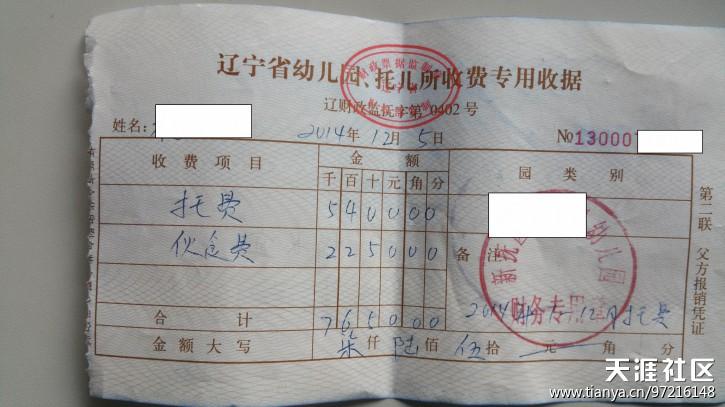 辽宁省幼儿园、托儿所收费专用收据
辽财政监抚字第0402号
姓名:
2014年12月5日 №13000
收费项目 金额 园类别
千百十元角分
托费 540000
伙食费 225000 备注
合计 765000 2014年 12月托费
金额大写 柒仟陆佰伍拾 元 角 分
第二联 父方报销凭证
财务专用章
天涯社区
www.tianya.cn/97216148